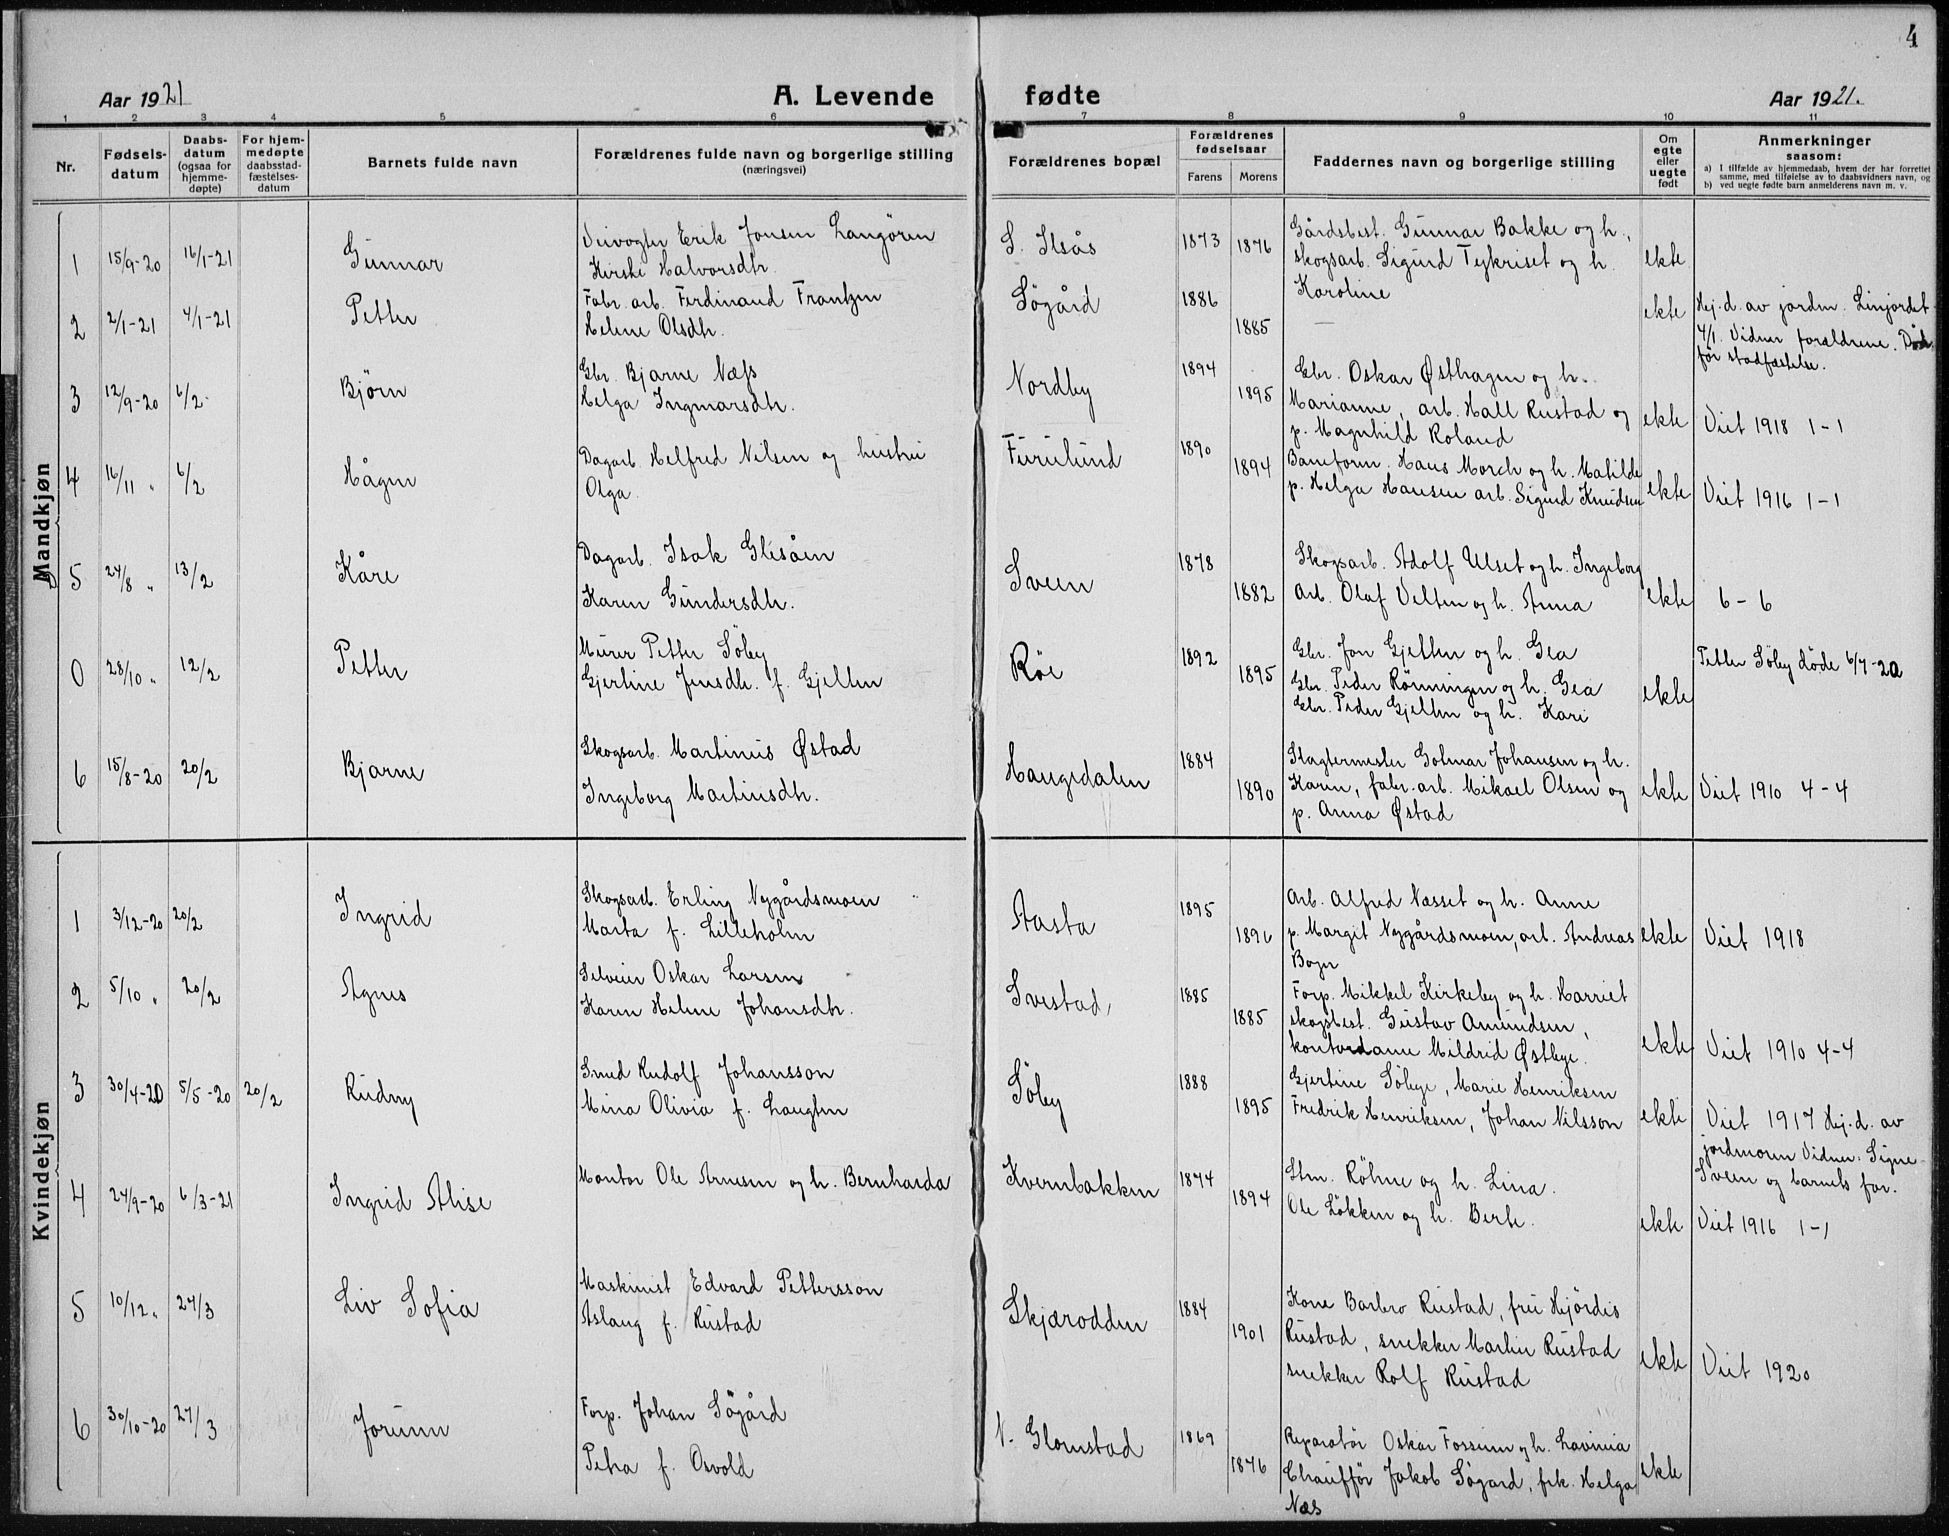 4
Aar 1921
A. Levende fødte
Aar 1921.
1 2 3 4 5 6 7 8 9 10 11
Nr.
Fødsels-
datum
Daabs-
datum
(ogsaa for
hjemme-
døpte)
For hjem-
medøpte
daabsstad-
fæstelses-
datum
Barnets fulde navn
Forældrenes fulde navn og borgerlige stilling
(næringsvei)
Forældrenes bopæl
Forældrenes
fødselsaar
Farens Morens
Faddernes navn og borgerlige stilling
Om
egte
eller
uegte
født
Anmerkninger
saasom:
a) I tilfælde av hjemmedaab, hvem der har forrettet
samme, med tilføielse av to daabsvidners navn, og
b) ved uegte fødte barn anmelderens navn m. v.
Mandkjøn
1 15/9-20 16/1-21 Gunnar
Veivogter Erik Jonsen Langören
Kirsti Halvorsdtr.
S. Ilsås 1873 1876
Gårdsbest. Gunnar Bakke og h.,
skogsarb. Sigurd Tykriset og h.
Karoline
ekte
2 2/1-21 4/1-21 Petter
Fabr. arb. Ferdinand Frantzen
Helene Olsdtr.
Sögård 1886 1885
—
ekte
Hj. d. av jordm. Linjordet
4/1. Vidner forældrene. Död
för stadfæstelse.
3 12/9-20 6/2- Björn
Gbr. Bjarne Næss
Helga Ingmarsdtr.
Nordby 1894 1895
Gbr. Oskar Østhagen og h.
Marianne, arb. Hall Rustad og
p. Magnhild Roland
ekte
Viet 1918 1-1
4 16/11 " 6/2 Hågen
Dagarb. Helfred Nilsen og hustru
Olga.
Furulund 1890 1894
Baneform. Hans Morch og h. Matilde
p. Helga Hansen arb. Sigurd Knudsen
ekte
Viet 1916 1-1
5 24/8 " 13/2 Kåre
Dagarb. Isak Glesåen
Karen Gundersdtr.
Sveen 1878 1882
Skogsarb. Adolf Ulset og h. Ingeborg
Arb. Olaf Velten og h. Anna
ekte
6-6
0 28/10 " 12/2 Petter
Murer Petter Söby
Gjertine Jensdtr. f. Gjelten
Röe 1892 1895
Gbr. Jon Gjelten og h. Gea
Gbr. Peder Rönningen og h. Gea
Gbr. Peder Gjelten og h. Kari
ekte
Petter Söby döde 6/7-20
6 15/8-20 20/2 Bjarne
Skogsarb. Martinus Østad
Ingeborg Martinsdtr.
Haugedalen 1884 1890
Slagtermester Golmar Johansen og h.
Karen, fabr. arb. Mikael Olsen og
p. Anna Østad
ekte
Viet 1910 4-4
Kvindekjøn
1 3/12-20 20/2 Ingrid
Skogsarb. Erling Nygårdsmoen
Marta f. Lilleholm
Aasta 1895 1896
Arb. Alfred Næsset og h. Anne
p. Margit Nygårdsmoen, arb. Andreas
ekte
Viet 1918
2 5/10 " 20/2 Agnes
Selveier Oskar Larsen
Karen Helene Johansdtr.
Svestad, 1885 1885
Forp. Mikkel Kirkeby og h. Harriet
skogsbest. Gustav Amundsen,
kontordame Mildrid Østbye.
ekte
Viet 1910 4-4
3 30/4-20 5/5-20 20/2 Rudny
Smed Rudolf Johansson
Mina Olivia f. Laugten
Söby 1888 1895
Gjertine Söbye, Marie Henriksen
Fredrik Henriksen, Johan Nilsson
ekte
Viet 1917 Hj. d. av
jordmoren Vidner: Signe
Sveen og barnets far.
4 24/9-20 6/3-21 Ingrid Alise
Montör Ole Arnesen og h. Bernharda
Kvernbakken 1874 1894
Stm. Röhne og h. Lina.
Ole Lökken og h. Berte.
ekte
Viet 1916 1-1
5 10/12 " 27/3 Liv Sofia
Maskinist Edvard Pettersson
Aslaug f. Rustad
Skjærodden 1884 1901
Kone Barbro Rustad, frü Hjördis
Rustad, snekker Martin Rustad
snekker Rolf Rustad
ekte
Viet 1920
6 30/10-20 27/3 Jorunn
Forp. Johan Sögård
Petra f. Osvold
N. Glomstad 1869 1876
Reparatör Oskar Fossum og h. Lavinia
Chaufför Jakob Sögard, frk. Helga
Næs
ekte